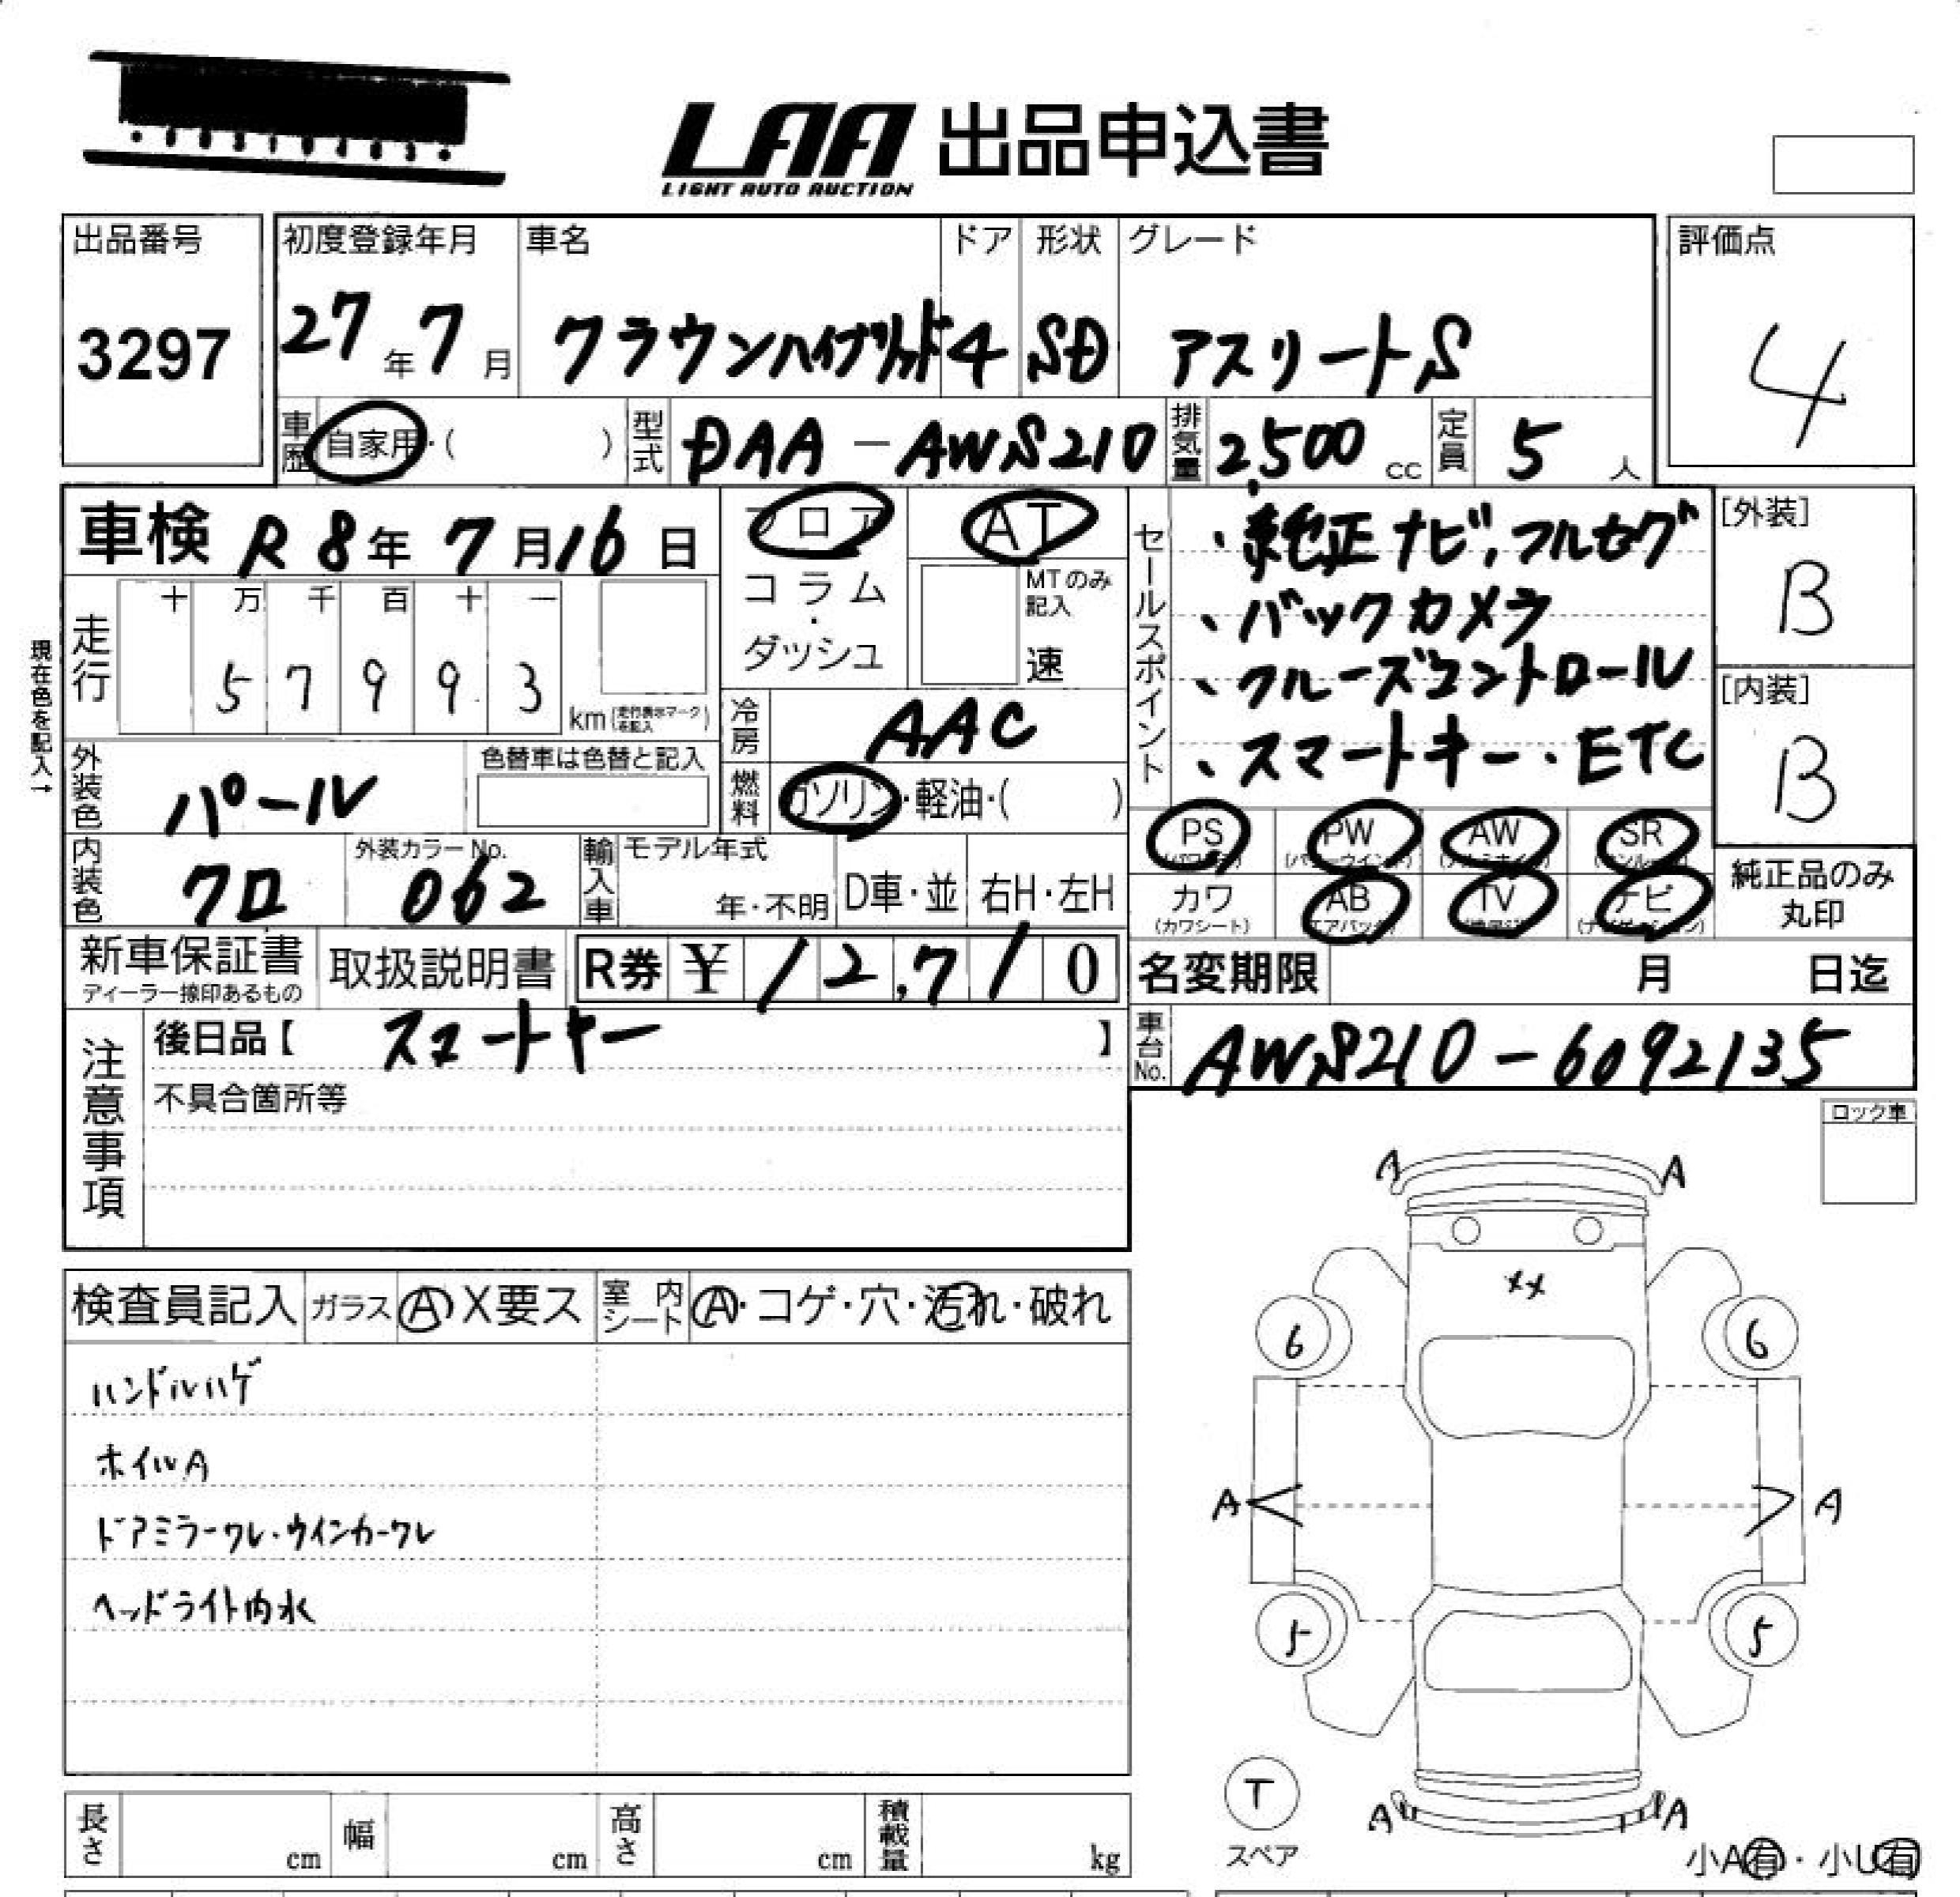 LAA 出品申込書
LIGHT AUTO AUCTION
出品番号
3297
初度登録年月
27年7月
車名
クラウンハイブリッド
ドア
4
形状
SD
グレード
アスリートS
評価点
4
車歴
自家用・( )
型式
DAA-AWS210
排気量
2,500cc
定員
5人
車検 R8年7月16日
フロア
コラム
・
ダッシュ
AT
MTのみ記入
速
セールスポイント
・純正ナビ,フルセグ
、バックカメラ
、クルーズコントロール
、スマートキー・ETC
[外装]
B
[内装]
B
現在色を記入→
走行
十 万 千 百 十 一
5 7 9 9 3
km(走行表示マークを記入)
冷房
AAC
燃料
ガソリン・軽油・( )
外装色
パール
色替車は色替と記入
内装色
クロ
外装カラーNo.
062
輸入車
モデル年式
年・不明
D車・並
右H・左H
PS
PW
(パワーウインド)
AW
SR
カワ
(カワシート)
AB
(エアバック)
TV
ナビ
(ナビゲーション)
純正品のみ
丸印
新車保証書
ディーラー捺印あるもの
取扱説明書
R券 ¥12,710
名変期限 月 日迄
車台No.
AWS210-6092135
注意事項
後日品【 スマートキー 】
不具合箇所等
ロック車
検査員記入
ガラス
A X要ス
室内シート
A・コゲ・穴・汚れ・破れ
ハンドルハゲ
ホイルA
ドアミラーワレ・ウインカーワレ
ヘッドライト内水
A A
XX
6 6
A A
5 5
T
スペア
A A
小A有・小U有
長さ cm
幅 cm
高さ cm
積載量 kg